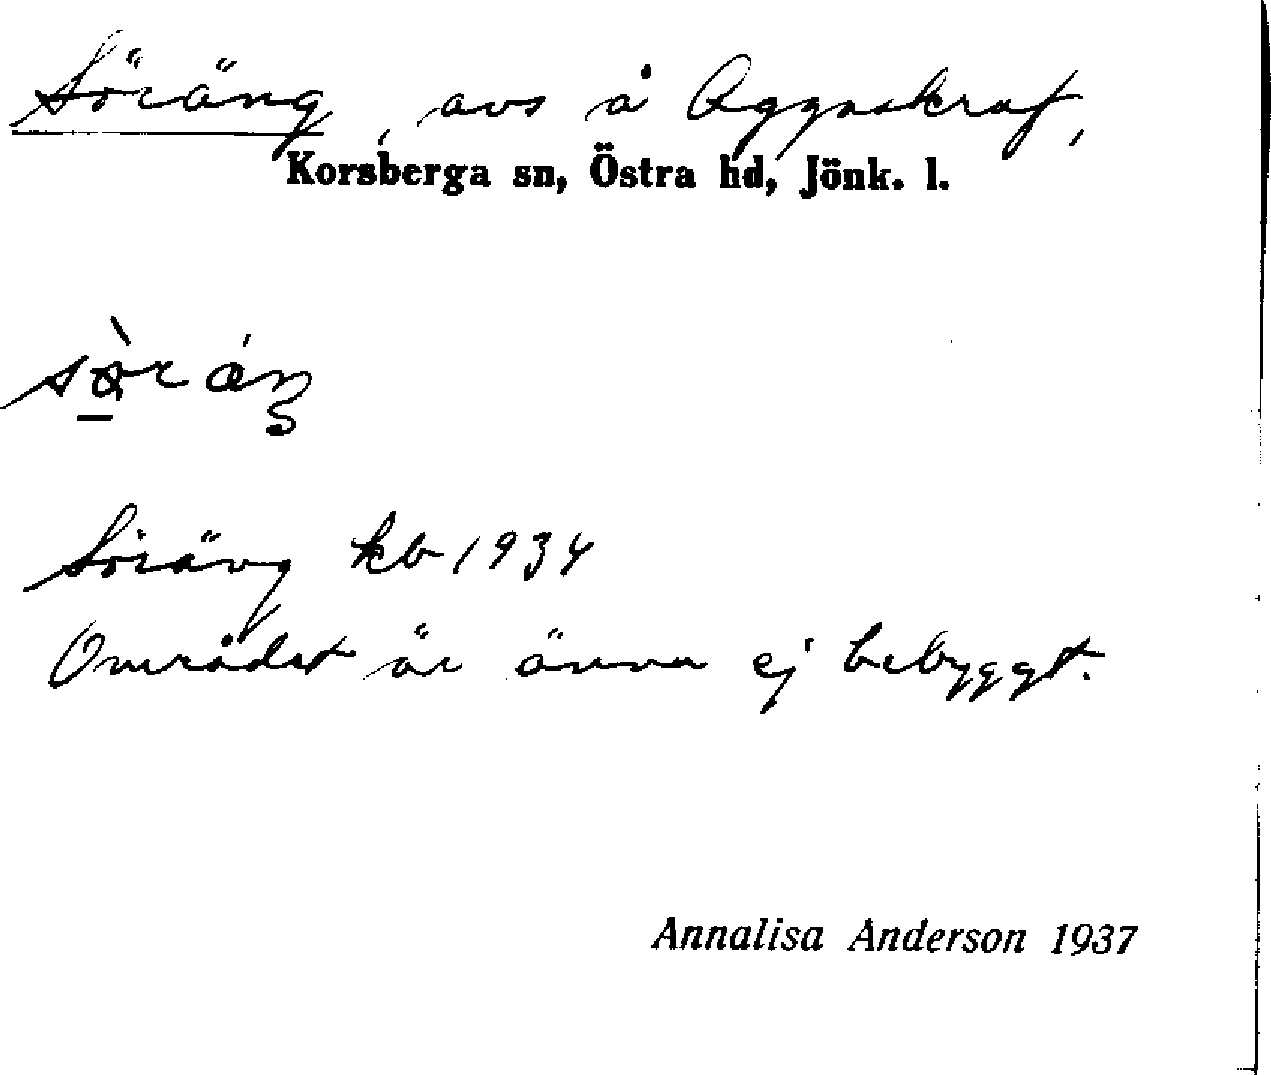 Söräng, avs å Aggaskruf,
Korsberga sn, Östra hd, Jönk. l.
Söräng kb 1934
Området är ännu ej bebyggt.
Annalisa Anderson 1937